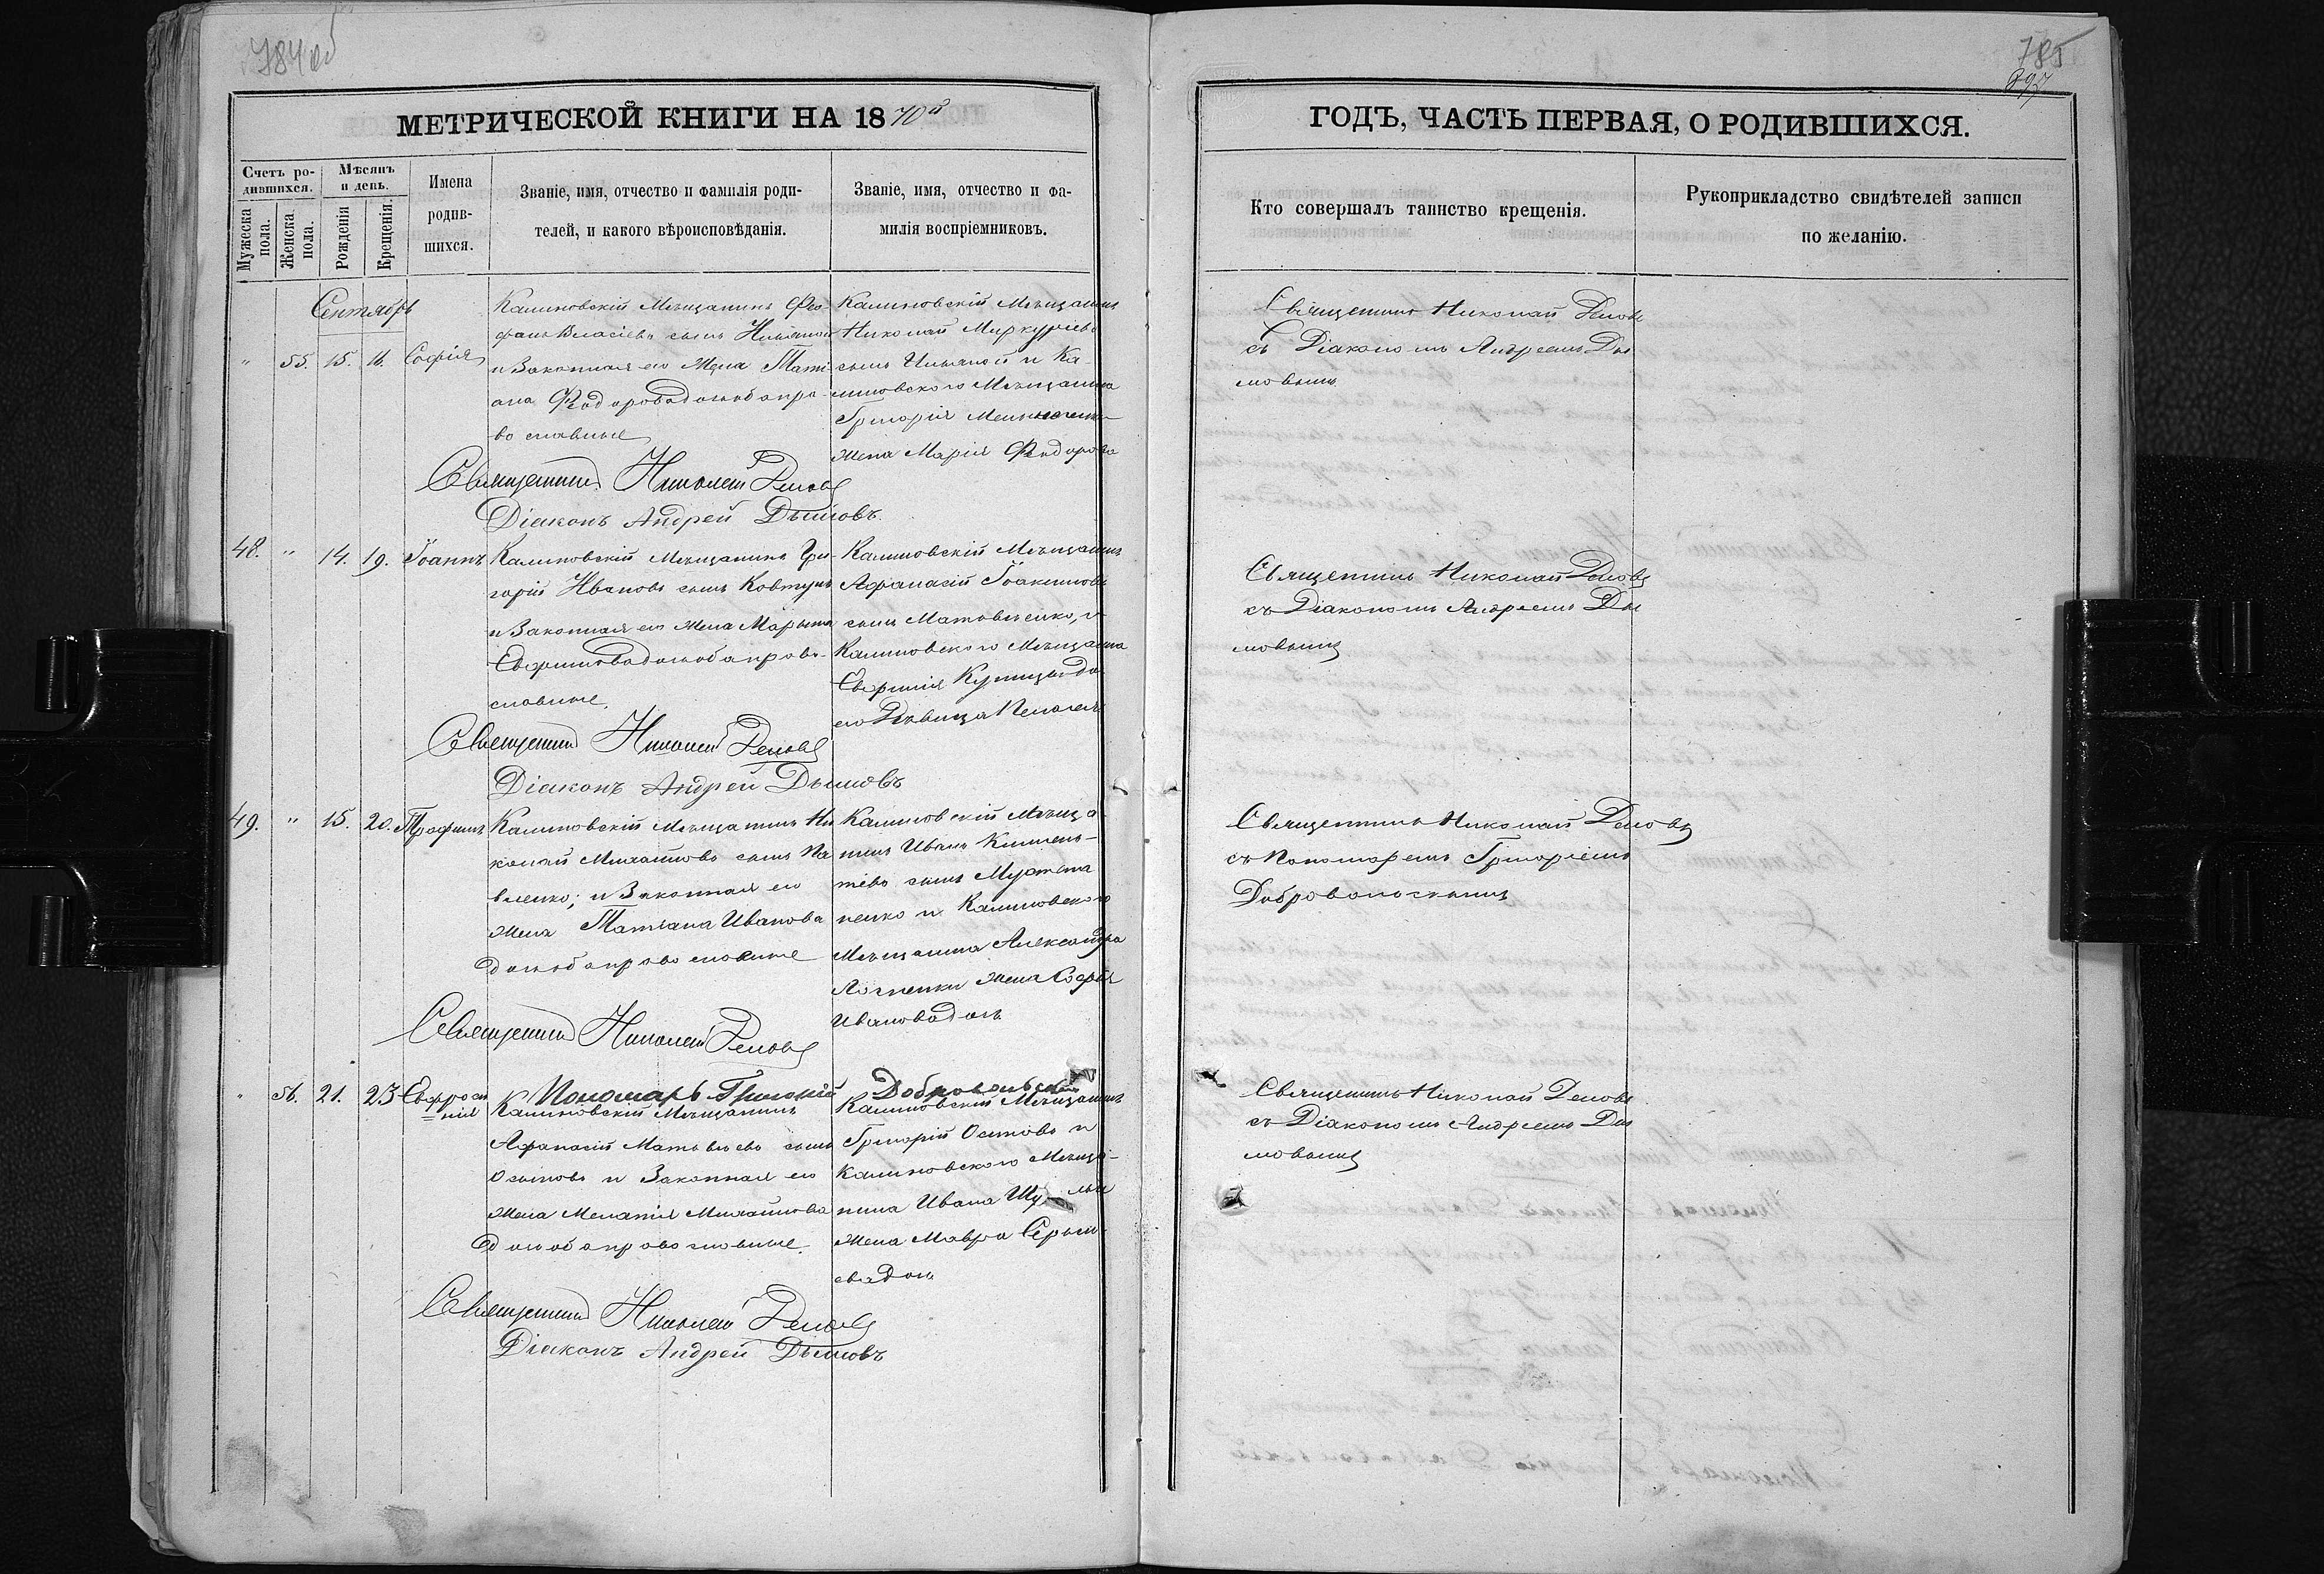 784 об
785
897
МЕТРИЧЕСКОЙ КНИГИ НА 1870й
ГОДЪ, ЧАСТЬ ПЕРВАЯ, О РОДИВШИХСЯ.
Счетъ ро-
дившихся.
Мужеска
пола.
Женска
пола.
Мѣсяцъ
и день.
Рожденія
Крещенія.
Имена
родив-
шихся.
Званіе, имя, отчество и фамилія роди-
телей, и какого вѣроисповѣданія.
Званіе, имя, отчество и фа-
милія воспріемниковъ.
Кто совершалъ таинство крещенія.
Рукоприкладство свидѣтелей записи
по желанію.
Сентябрь
" 55. 15. 16. Софія
Калиновскій Мѣщанинъ Фео
фанъ Власіевъ сынъ
и Законная его Жена Таті
ана Федорова оба пра-
во славные
Калиновскій Мѣщанинъ
Николай Меркуріевъ
сынъ Ильяной и Ка-
линовского Мѣщанина
Григорія
жена Марія Федорова
Священникъ Николай
съ Діакономъ Андреемъ Ды
мовымъ
Священникъ Николай
Діаконъ Андрей Дымовъ.
48. " 14. 19. Іоаннъ
Калиновскій Мѣщанинъ Гри-
горій Ивановъ сынъ Ковтунъ
и Законная его Жена Марына
оба право-
славные.
Калиновскій Мѣщанинъ
Афанасій Іоакимовъ
сынъ Матовченко, и
Калиновского Мѣщанина
Евфимія до
его Дѣвица Пелагея
Священникъ Николай
съ Діакономъ Андреемъ Ды
мовымъ
Священникъ Николай
Діаконъ Андрей Дымовъ
49. " 15. 20. Трофимъ
Калиновскій Мѣщанинъ Ни
колай Михайловъ сынъ Па
вленко; и Законная его
Жена Татіана Иванова
оба православные
Калиновскій Мѣща
нинъ Иванъ Климен-
тіевъ сынъ
ненко и Калиновского
Мѣщанина Александра
жена Софія
Иванова
Священникъ Николай
съ Пономаремъ Григоріемъ
Добровольскимъ
Священникъ Николай
Пономарь Григорій Добровольскій
" 56. 21. 23 Евфроси
нія
Калиновскій Мѣщанинъ
Афанасій Матвѣевъ сынъ
Осиповъ и Законная его
Жена Меланія Михайлова
оба православные.
Калиновскій Мѣщанинъ
Григорій Осиповъ и
Калиновского Мѣща-
нина Ивана
Жена Мавра
Священникъ Николай
съ Діакономъ Андреемъ Ды
мовымъ
Священникъ Николай
Діаконъ Андрей Дымовъ